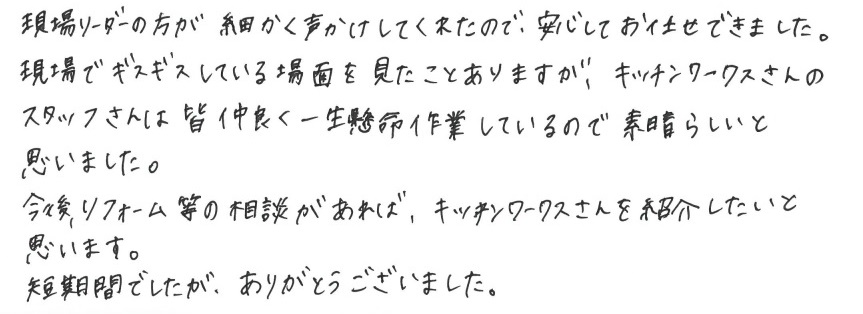 現場リーダーの方が細かく声かけしてくれたので、安心してお任せできました。
現場でギスギスしている場面を見たことありますが、キッチンワークスさんの
スタッフさんは皆仲良く一生懸命作業しているので素晴らしいと
思いました。
今後、リフォーム等の相談があれば、キッチンワークスさんを紹介したいと
思います。
短期間でしたが、ありがとうございました。